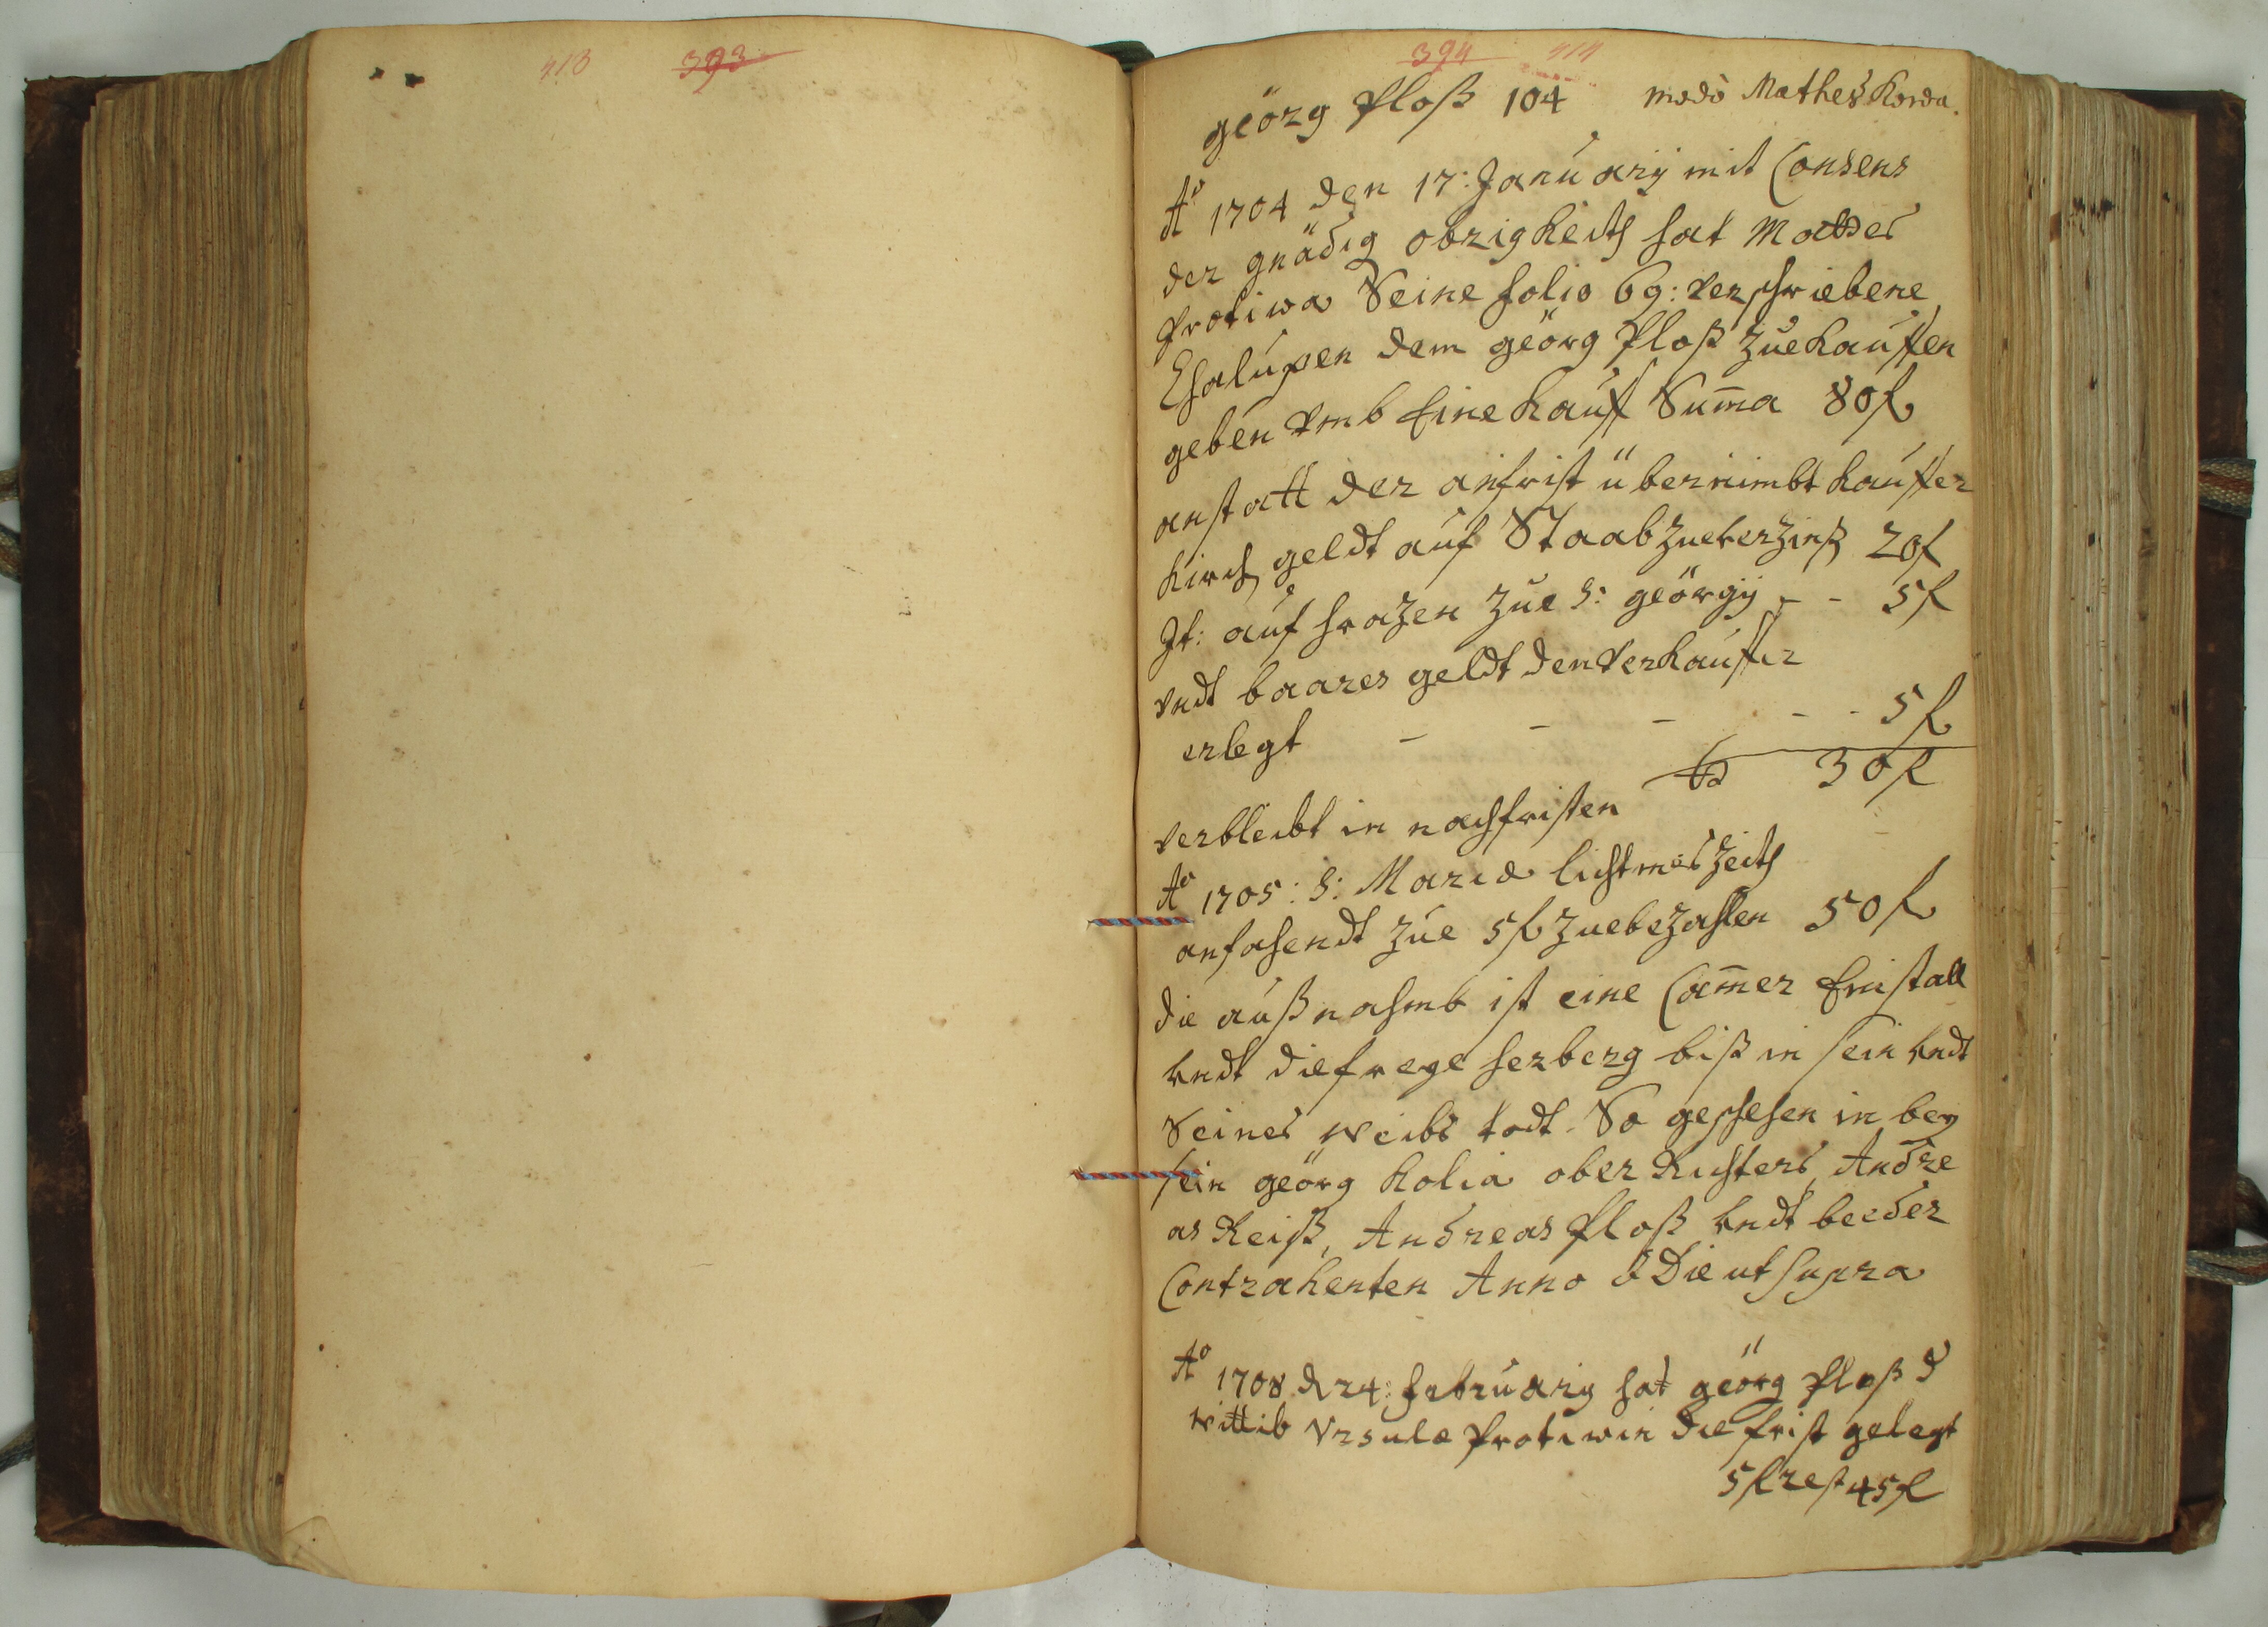 413 393
394 414
geörg Ploß 104 modò Mathes Korda.
Aº 1704 den 17: Januarÿ mit Consens
der gnädig obrigkeith hat Mattes
Protiwa Seine folio 69: verschriebene
Chalupen dem geörg Ploß zue kauffen
geben vmb Eine kauff Sum̄a 80 f
anstatt der anfrist übernimbt kauffer
Kirch geldt auf Staab zueverzinß 20 f
It: auf hrazen zue S: geörgÿ - - 5 f
vndt baares geldt den verkauffer
erlegt - - - - - 5 f
30 f
verbleibt in nachfristen
Aº 1705: S: Maria lichtmeszeith
anfahendt zue 5 f zuebezahlen 50 f
die außnahmb ist eine Cam̄er Ein stall
vndt die freye herberg biß in sein vndt
Seines weibs todt. So geschehen in bey
sein geörg Kolia ober Richters, Andre
as Reiß, Andreas Ploß vndt beeder
Contrahenten Anno & Die ut supra
Aº 1708 d 24: februarÿ hat geörg Ploß d
wittib Vrsula Protiwin die frist gelegt
5 f rest 45 f